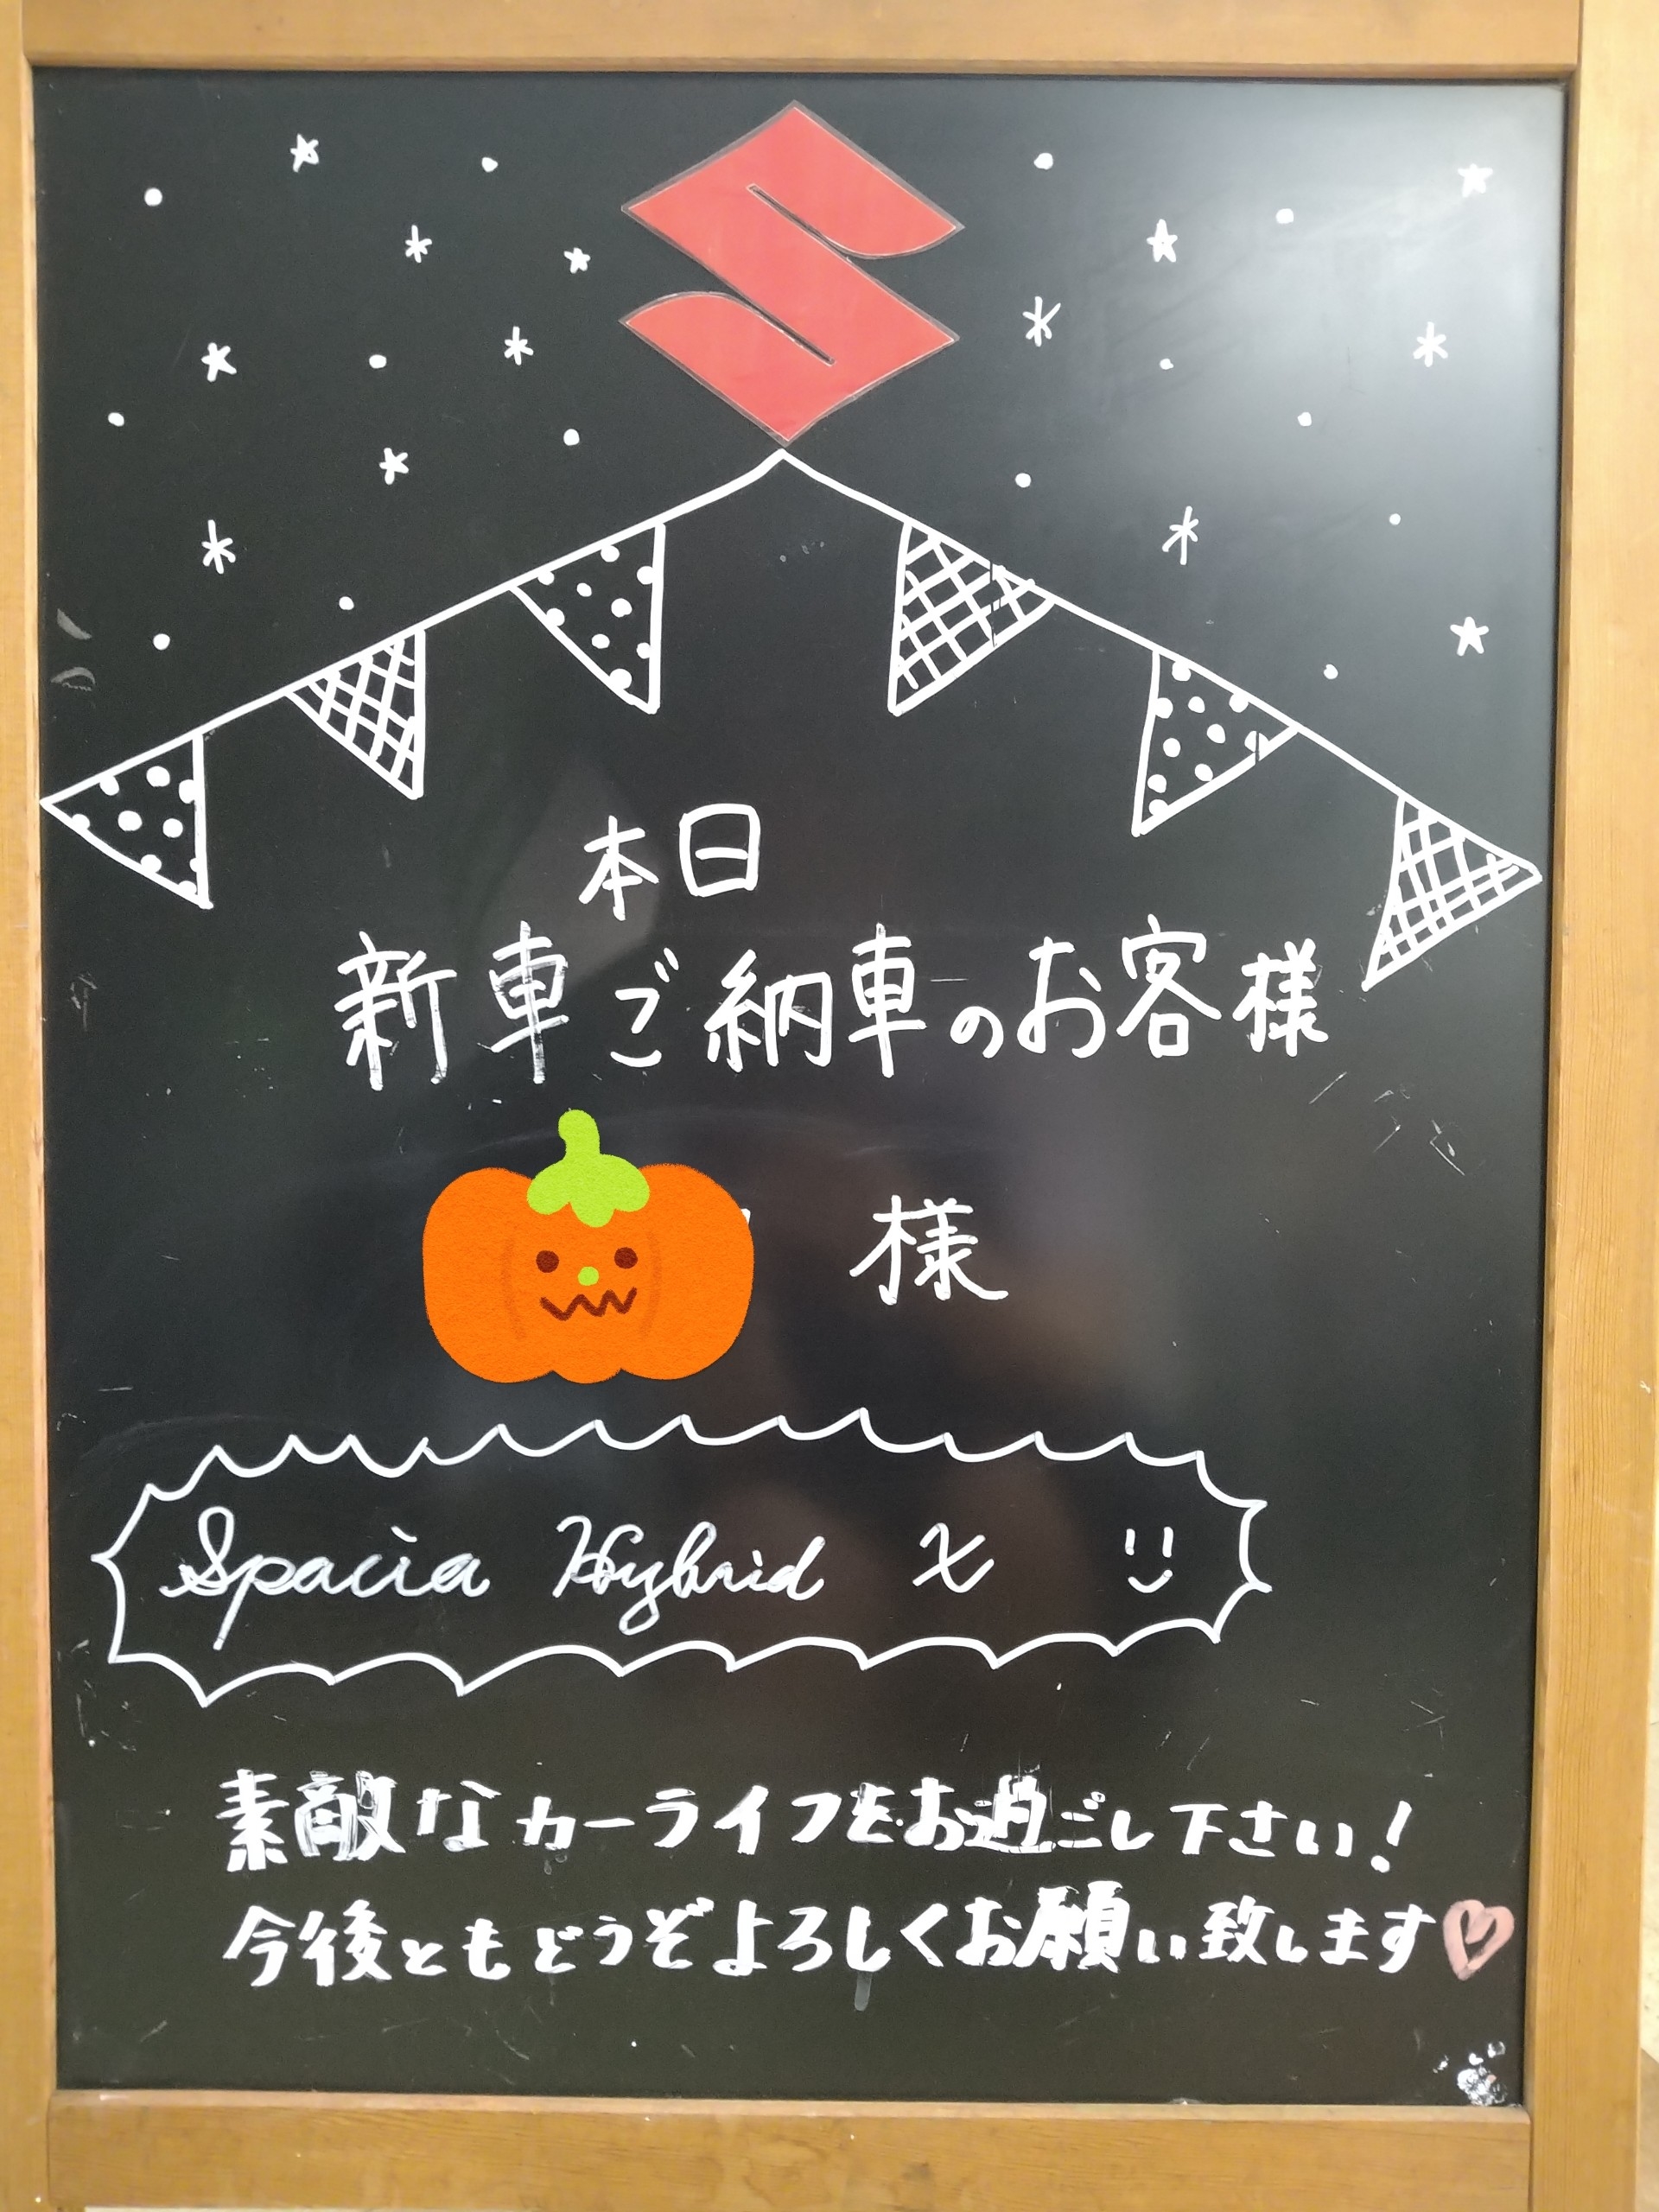 本日
新車ご納車のお客様
様
Spacia Hybrid X
素敵なカーライフをお過ごし下さい!
今後ともどうぞよろしくお願い致します♡